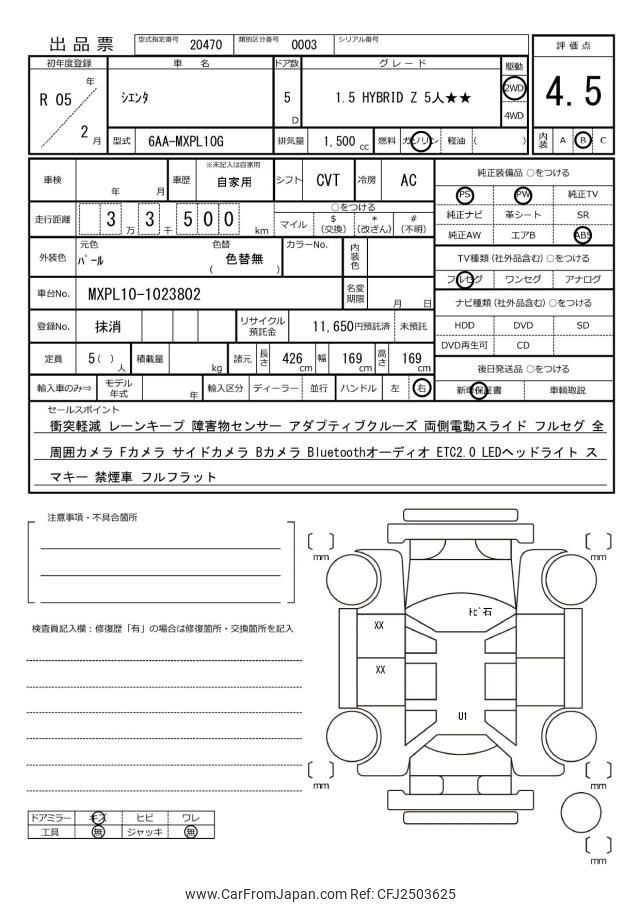 出品票
型式指定番号 20470 類別区分番号 0003 シリアル番号
初年度登録 車 名 ドア数 グレード 駆動
評価点
R 05 年 2 月
シエンタ
5 D
1.5 HYBRID Z 5人★★
2WD
4WD
4.5
型式 6AA-MXPL10G 排気量 1,500 cc 燃料 ガソリン 軽油 ( )
内装 A B C
車検 年 月 車歴 ※未記入は自家用 自家用 シフト CVT 冷房 AC
走行距離 3 万 3 千 5 0 0 km
○をつける
マイル $ (交換) * (改ざん) # (不明)
外装色 元色 パール 色替 ( 色替無 ) カラーNo. 内装色
車台No. MXPL10-1023802 名変期限 月 日
登録No. 抹消 リサイクル預託金 11,650円預託済 未預託
定員 5 ( ) 人 積載量 kg 諸元 長さ 426 cm 幅 169 cm 高さ 169 cm
輸入車のみ⇒ モデル年式 年 輸入区分 ディーラー 並行 ハンドル 左 右
純正装備品 ○をつける
PS PW 純正TV
純正ナビ 革シート SR
純正AW エアB ABS
TV種類 (社外品含む) ○をつける
フルセグ ワンセグ アナログ
ナビ種類 (社外品含む) ○をつける
HDD DVD SD
DVD再生可 CD
後日発送品 ○をつける
新車保証書 車輌取説
セールスポイント
衝突軽減 レーンキープ 障害物センサー アダプティブクルーズ 両側電動スライド フルセグ 全
周囲カメラ Fカメラ サイドカメラ Bカメラ Bluetoothオーディオ ETC2.0 LEDヘッドライト ス
マキー 禁煙車 フルフラット
注意事項・不具合箇所
検査員記入欄：修復歴「有」の場合は修復箇所・交換箇所を記入
ドアミラー キズ ヒビ ワレ
工具 無 ジャッキ 無
mm
mm
トビ石
XX
XX
U1
mm
mm
mm
www.CarFromJapan.com Ref: CFJ2503625